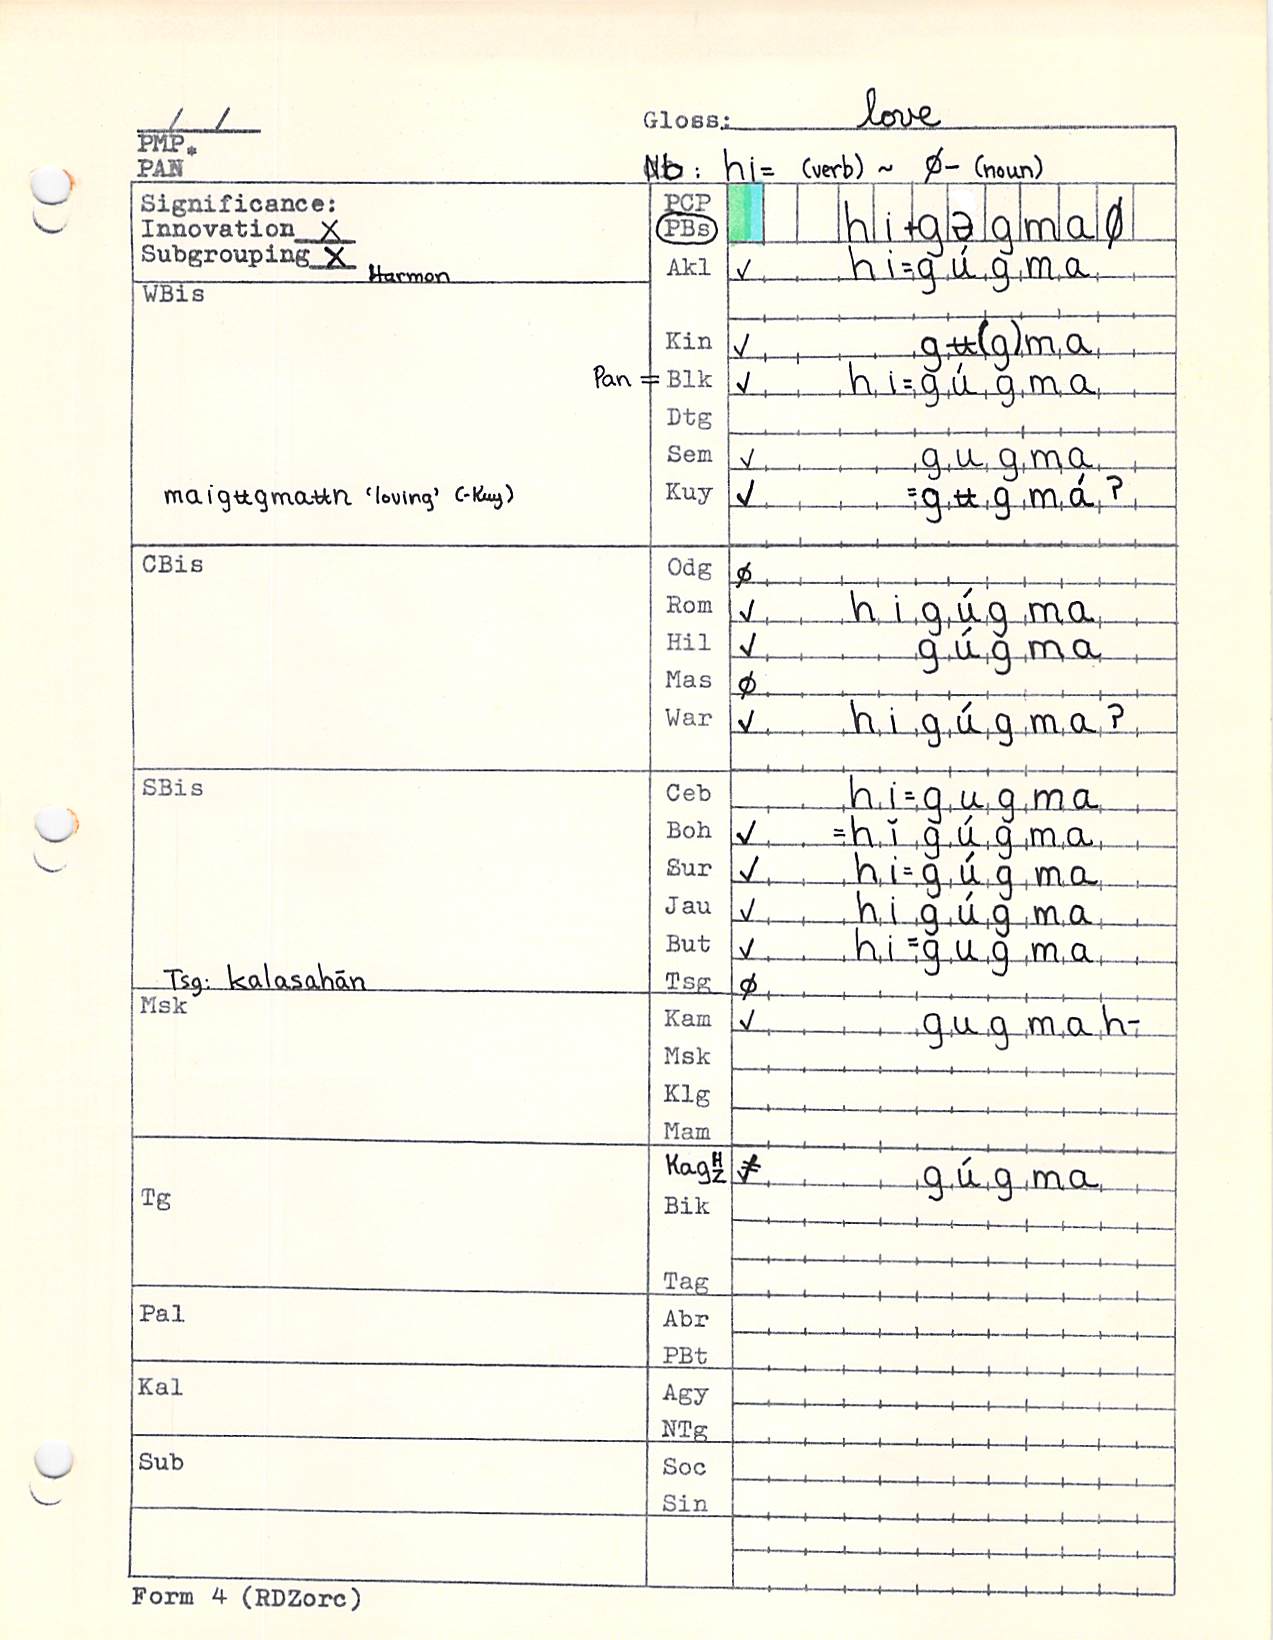 / /
Gloss: love
PMP*
PAN
Nb: hi= (verb) ~ ∅- (noun)
Significance:
Innovation X
Subgrouping X Harmon
PCP
PBs hi+gəgma∅
Akl ✓ hi=gúgma
WBis
Kin ✓ gʉ(g)ma
Pan = Blk ✓ hi=gúgma
Dtg
Sem ✓ gugma
maigʉgmaʉn ‘loving’ (-Kuy)
Kuy ✓ =gʉgmáʔ
CBis
Odg ∅
Rom ✓ higúgma
Hil ✓ gúgma
Mas ∅
War ✓ higúgmaʔ
SBis
Ceb hi=gugma
Boh ✓ =hĭgúgma
Sur ✓ hi=gúgma
Jau ✓ higúgma
But ✓ hi=gugma
Tsg: kalasahān
Tsg ∅
Msk
Kam ✓ gugmah-
Msk
Klg
Mam
Kag H Z ≠ gúgma
Tg
Bik
Tag
Pal
Abr
PBt
Kal
Agy
NTg
Sub
Soc
Sin
Form 4 (RDZorc)